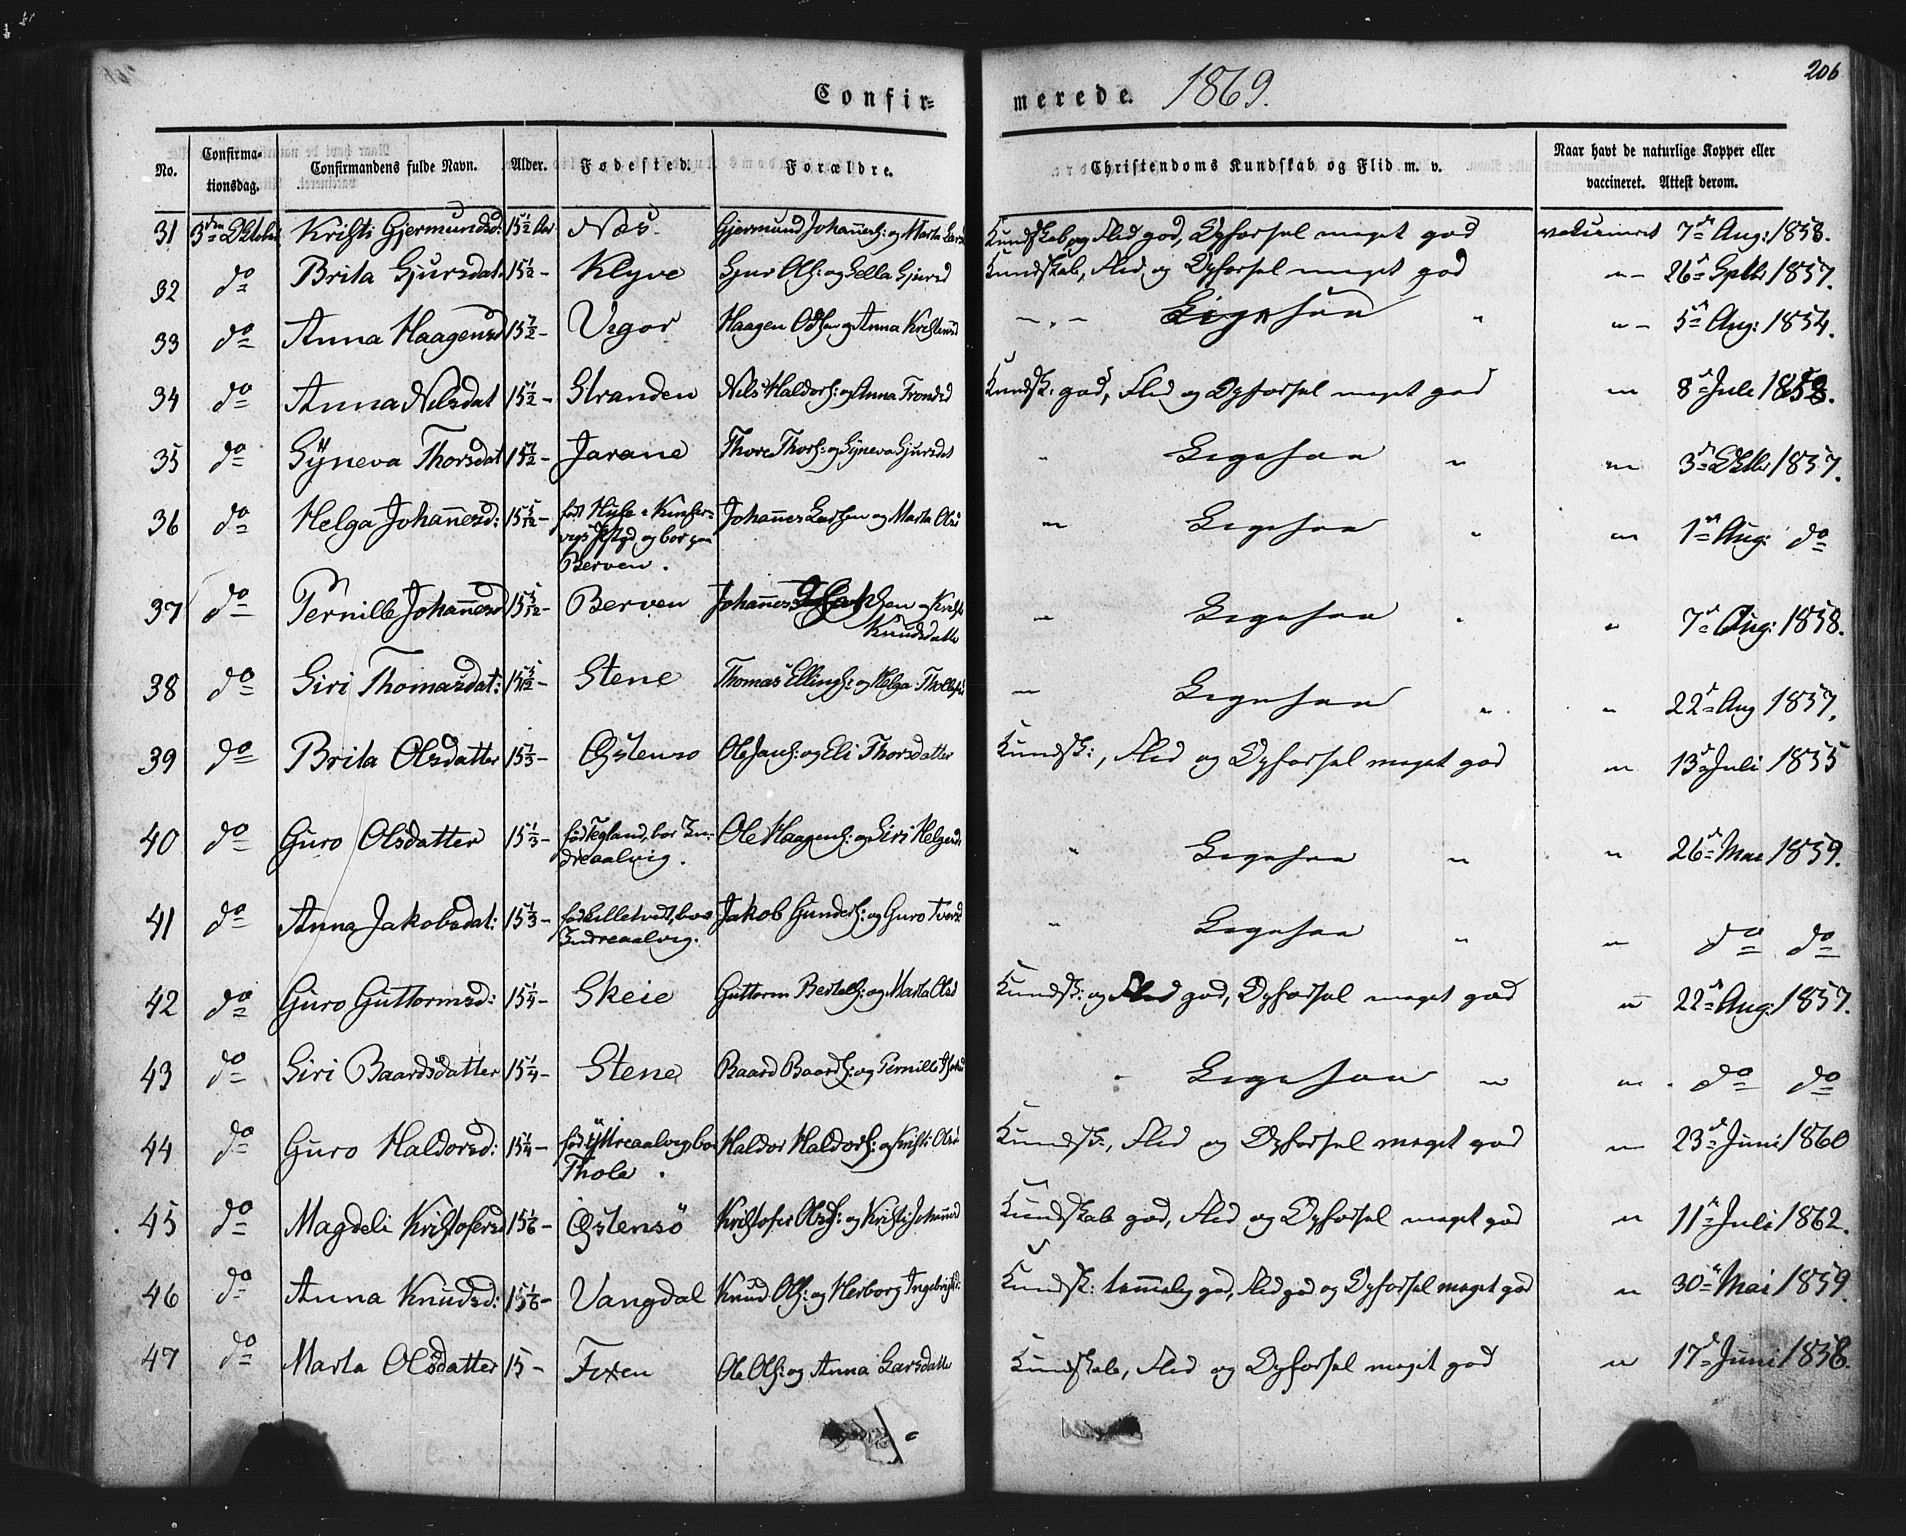 206
Confir- merede. 1869.
No. Confirma-tionsdag. Confirmandens fulde Navn. Alder. Fødested. Forældre. Christendoms Kundskab og Flid m. v. Naar havt de naturlige Kopper eller vaccineret. Attest derom.
31 3die Oktober Kristi Gjermundsd: 15 1/2 Aar Næs. Gjermund Johanness: og Marta Kundskab og Flid god, Opførsel meget god vakcineret 7de Aug: 1858.
32 do Brita Gjursdat 15 1/2 - Klyve Gjur Ols: og Gjursd Kundskab, Flid og Opførsel meget god " - 26de Septb: 1857.
33 do Anna Haagensd - Vigør Haagen og Anna - " - Ligesaa " " - 5te Aug: 1854.
34 do Anna Nilsdat 15 1/2 - Stranden Nils Haldors: og Anna Trondsd Kundsk: god, Flid og Opførsel meget god " 8de Juli 1858.
35 do Syneva Thorsdat - Jarane Thore Thors: og Syneva Gjursdat " Ligesaa " " 3de Oktbr 1857.
36 do Helga Johannesd: 15 5/12 - født Huse i Kinser-
vigs Pstgd og bor paa
Berven. Johannes Larsen og Marta " Ligesaa " " 1ste Aug: do
37 do Pernille Johannesd 15 5/12 - Berven Johannes og Kristi
Knudsdatter " Ligesaa " " 7de Aug: 1858.
38 do Siri Thomasdat: 15 5/12 - Stene Thomas Ellings: og Helga " Ligesaa " " 22de Aug 1857.
39 do Brita Olsdatter 15 1/3 - Østensø Ole Jans: og Eli Thorsdatter Kundsk:, Flid og Opførsel meget god " 13de Juli 1855
40 do Guro Olsdatter 15 1/3 - fød Tegland, bor In-
dreaalvig. Ole Haagens: og Siri Helgesd " Ligesaa " " 26de Mai 1859.
41 do Anna Jakobsdat: 15 1/3 - fød Lilletvedt, bor
Indreaalvig. Jakob Gunders: og Guro " Ligesaa " " do do
42 do Guro Guttormsd: 15 1/4 - Skeie Guttorm Bertels: og Marta Olsd Kundsk: og Flid god, Opførsel meget god " 22de Aug: 1857.
43 do Siri Baardsdatter 15 1/4 - Stene Baard Baards: og Pernille " Ligesaa " " do do
44 do Guro Haldorsd: 15 1/4 - fød Yttreaalvig, bor
Thole. Haldor Haldors: og Kristi Kundsk:, Flid og Opførsel meget god " 23de Juni 1860
45 do Magdeli Kristofersd 15 1/6 - Østensø Kristofer Ols: og Kristi Johannesd Kundskab god, Flid og Opførsel meget god " 11te Juli 1862.
46 do Anna Knudsd: 15 1/6 - Vangdal Knud Ols: og Herborg Ingebrigtsd: Kundsk: temmelig god, Flid god og Opførsel meget god " 30te Mai 1859.
47 do Marta Olsdatter 15 - Fixen Ole Ols: og Anna Larsdatter Kundskab, Flid og Opførsel meget god " 17de Juni 1858.